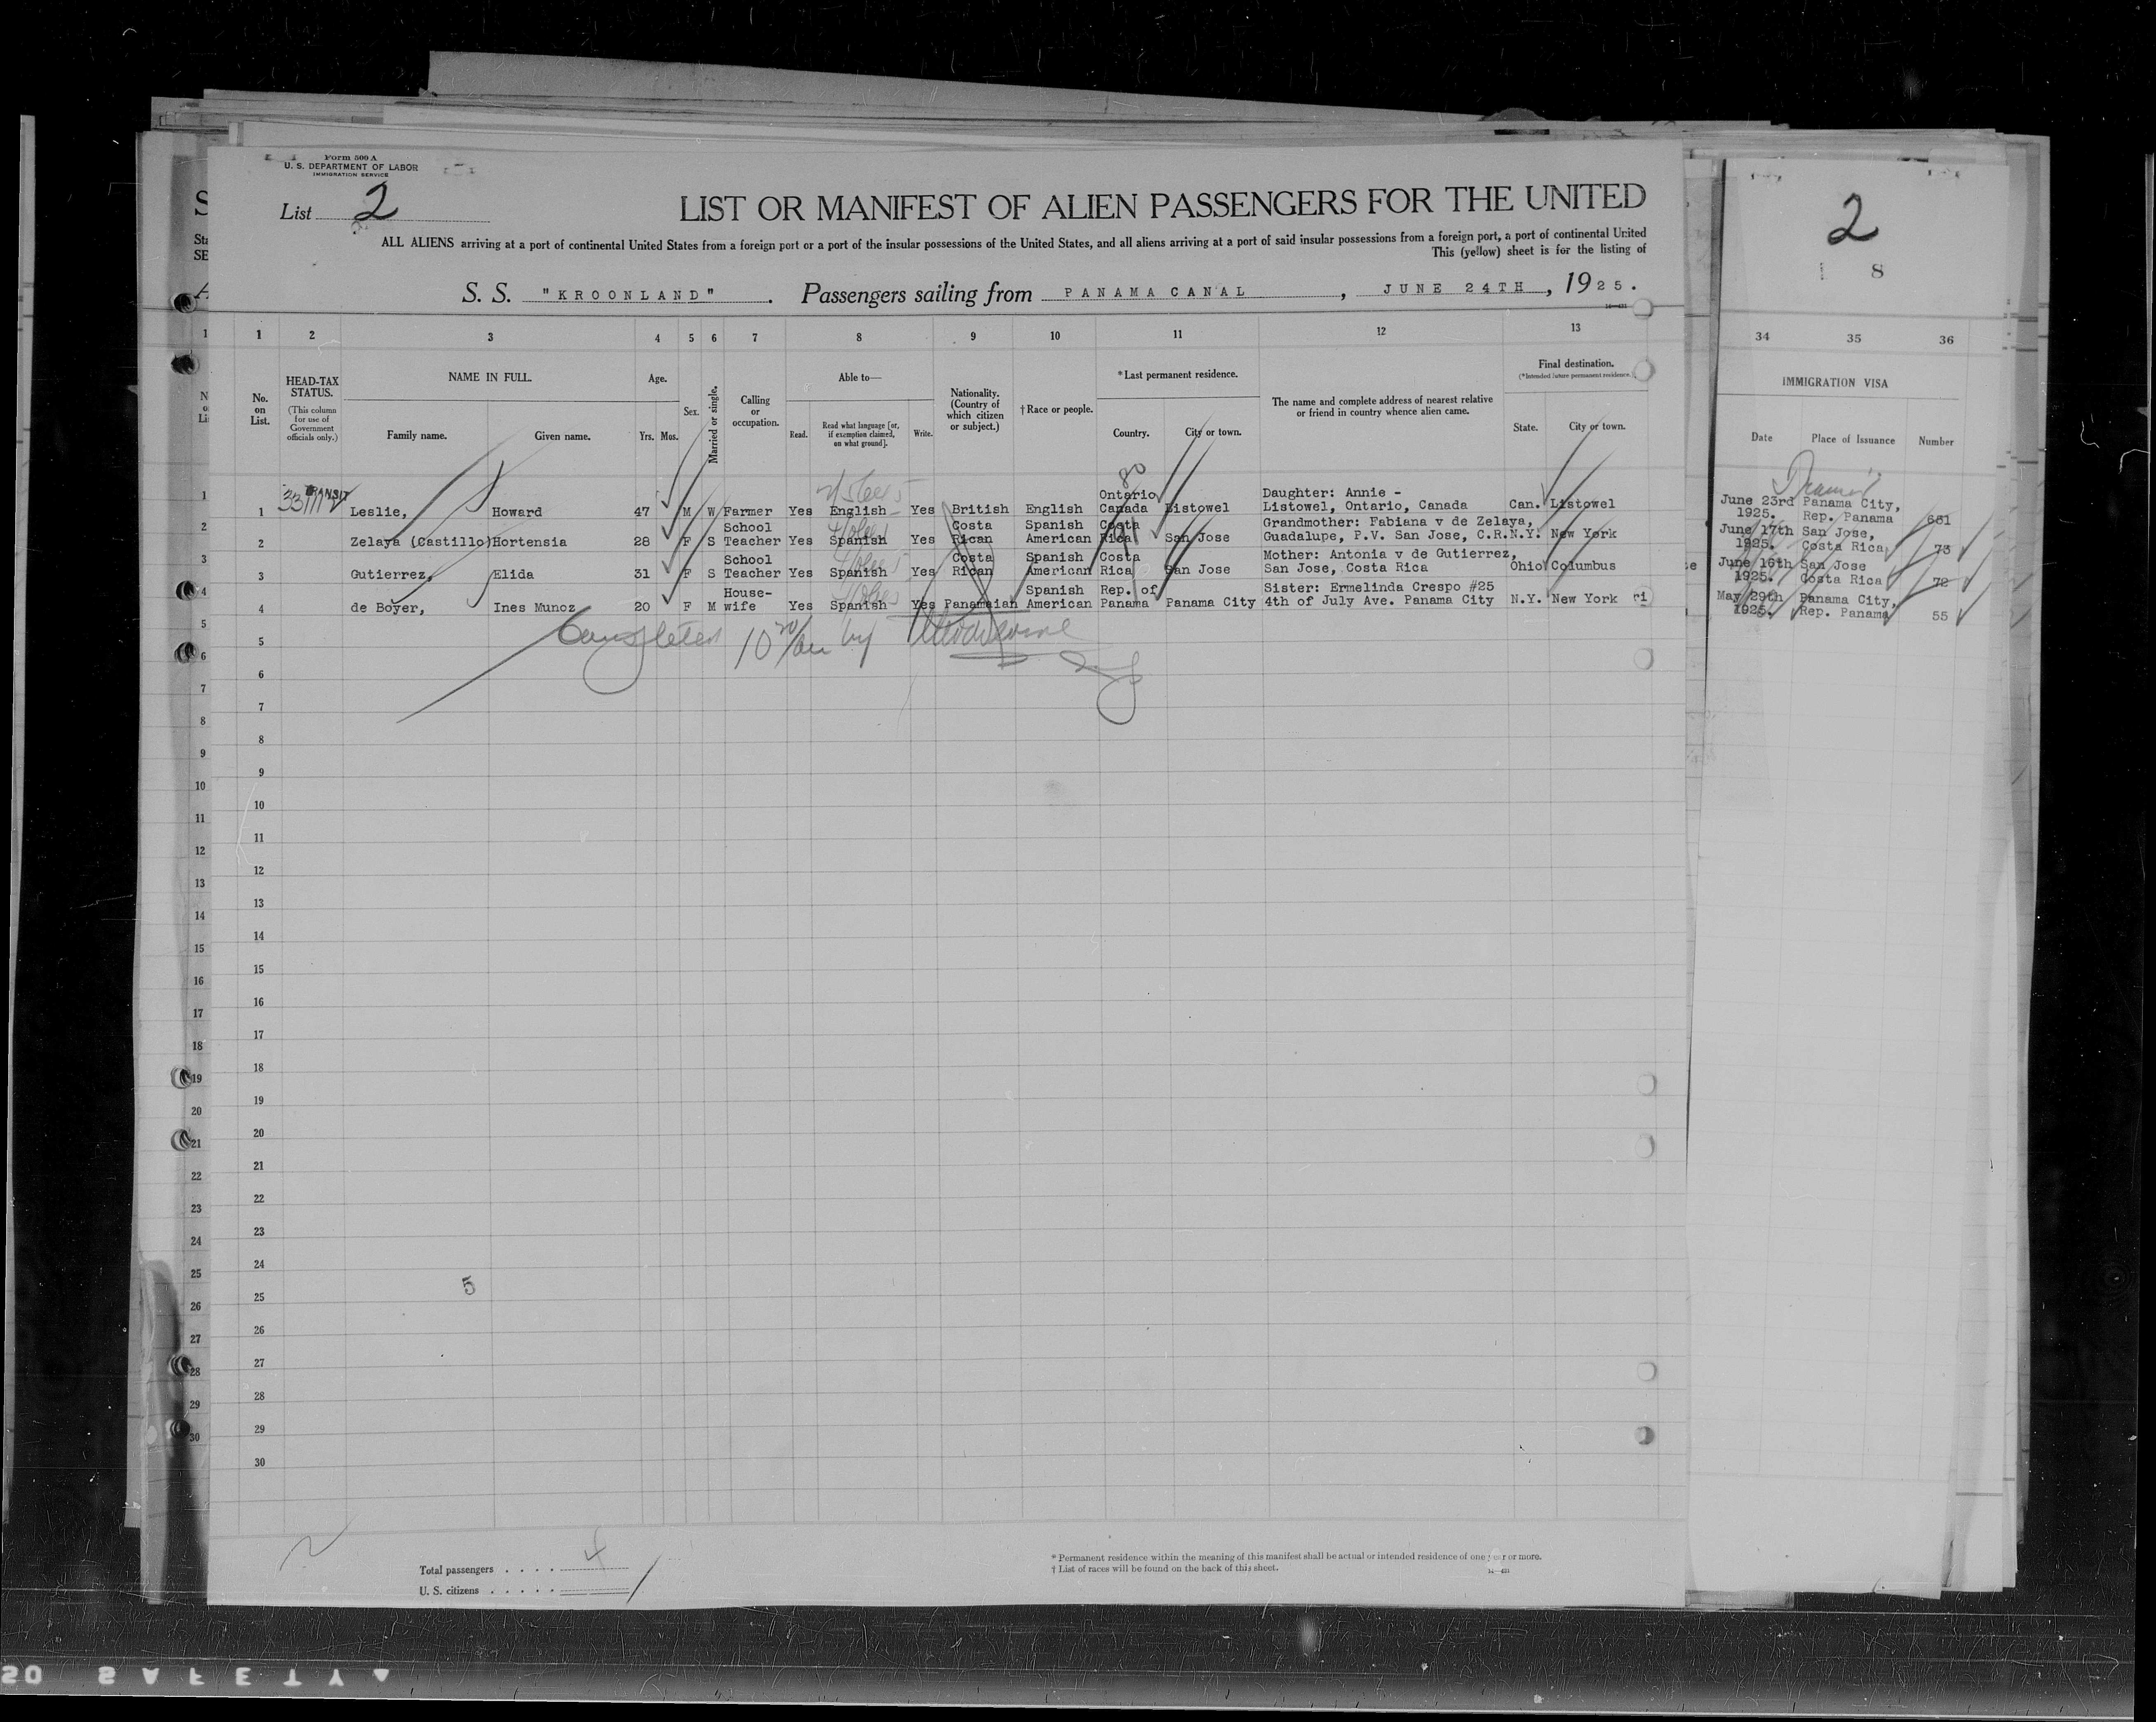 Form 500 A
U. S. DEPARTMENT OF LABOR
IMMIGRATION SERVICE
List 2
LIST OR MANIFEST OF ALIEN PASSENGERS FOR THE UNITED
ALL ALIENS arriving at a port of continental United States from a foreign port or a port of the insular possessions of the United States, and all aliens arriving at a port of said insular possessions from a foreign port, a port of continental United
This (yellow) sheet is for the listing of
S. S. "KROONLAND". Passengers sailing from PANAMA CANAL, JUNE 24TH, 1925.
1 2 3 4 5 6 7 8 9 10 11 12 13
No. on List.
HEAD-TAX STATUS.
(This column for use of Government officials only.)
NAME IN FULL.
Family name. Given name.
Age.
Yrs. Mos.
Sex.
Married or single.
Calling or occupation.
Able to—
Read. Read what language [or, if exemption claimed, on what ground]. Write.
Nationality. (Country of which citizen or subject.)
†Race or people.
*Last permanent residence.
Country. City or town.
The name and complete address of nearest relative or friend in country whence alien came.
Final destination.
(*Intended future permanent residence.)
State. City or town.
2
8
34 35 36
IMMIGRATION VISA
Date Place of Issuance Number
1 TRANSIT Leslie, Howard 47 M W Farmer Yes English Yes British English Ontario Canada Listowel Daughter: Annie - Listowel, Ontario, Canada Can. Listowel
2 Zelaya (Castillo) Hortensia 28 F S School Teacher Yes Spanish Yes Costa Rican Spanish American Costa Rica San Jose Grandmother: Fabiana v de Zelaya, Guadalupe, P.V. San Jose, C.R. N.Y. New York
3 Gutierrez, Elida 31 F S School Teacher Yes Spanish Yes Costa Rican Spanish American Costa Rica San Jose Mother: Antonia v de Gutierrez, San Jose, Costa Rica Ohio Columbus
4 de Boyer, Ines Munoz 20 F M House-wife Yes Spanish Yes Panamaian Spanish American Rep. of Panama Panama City Sister: Ermelinda Crespo #25 4th of July Ave. Panama City N.Y. New York
June 23rd 1925. Panama City, Rep. Panama 681
June 17th 1925. San Jose, Costa Rica 73
June 16th 1925. San Jose Costa Rica 72
May 29th 1925. Panama City, Rep. Panama 55
Completed 10 by
5
6
7
8
9
10
11
12
13
14
15
16
17
18
19
20
21
22
23
24
5
25
26
27
28
29
30
Total passengers . . . . 4
U. S. citizens . . . . .
* Permanent residence within the meaning of this manifest shall be actual or intended residence of one year or more.
† List of races will be found on the back of this sheet.
SAFETY